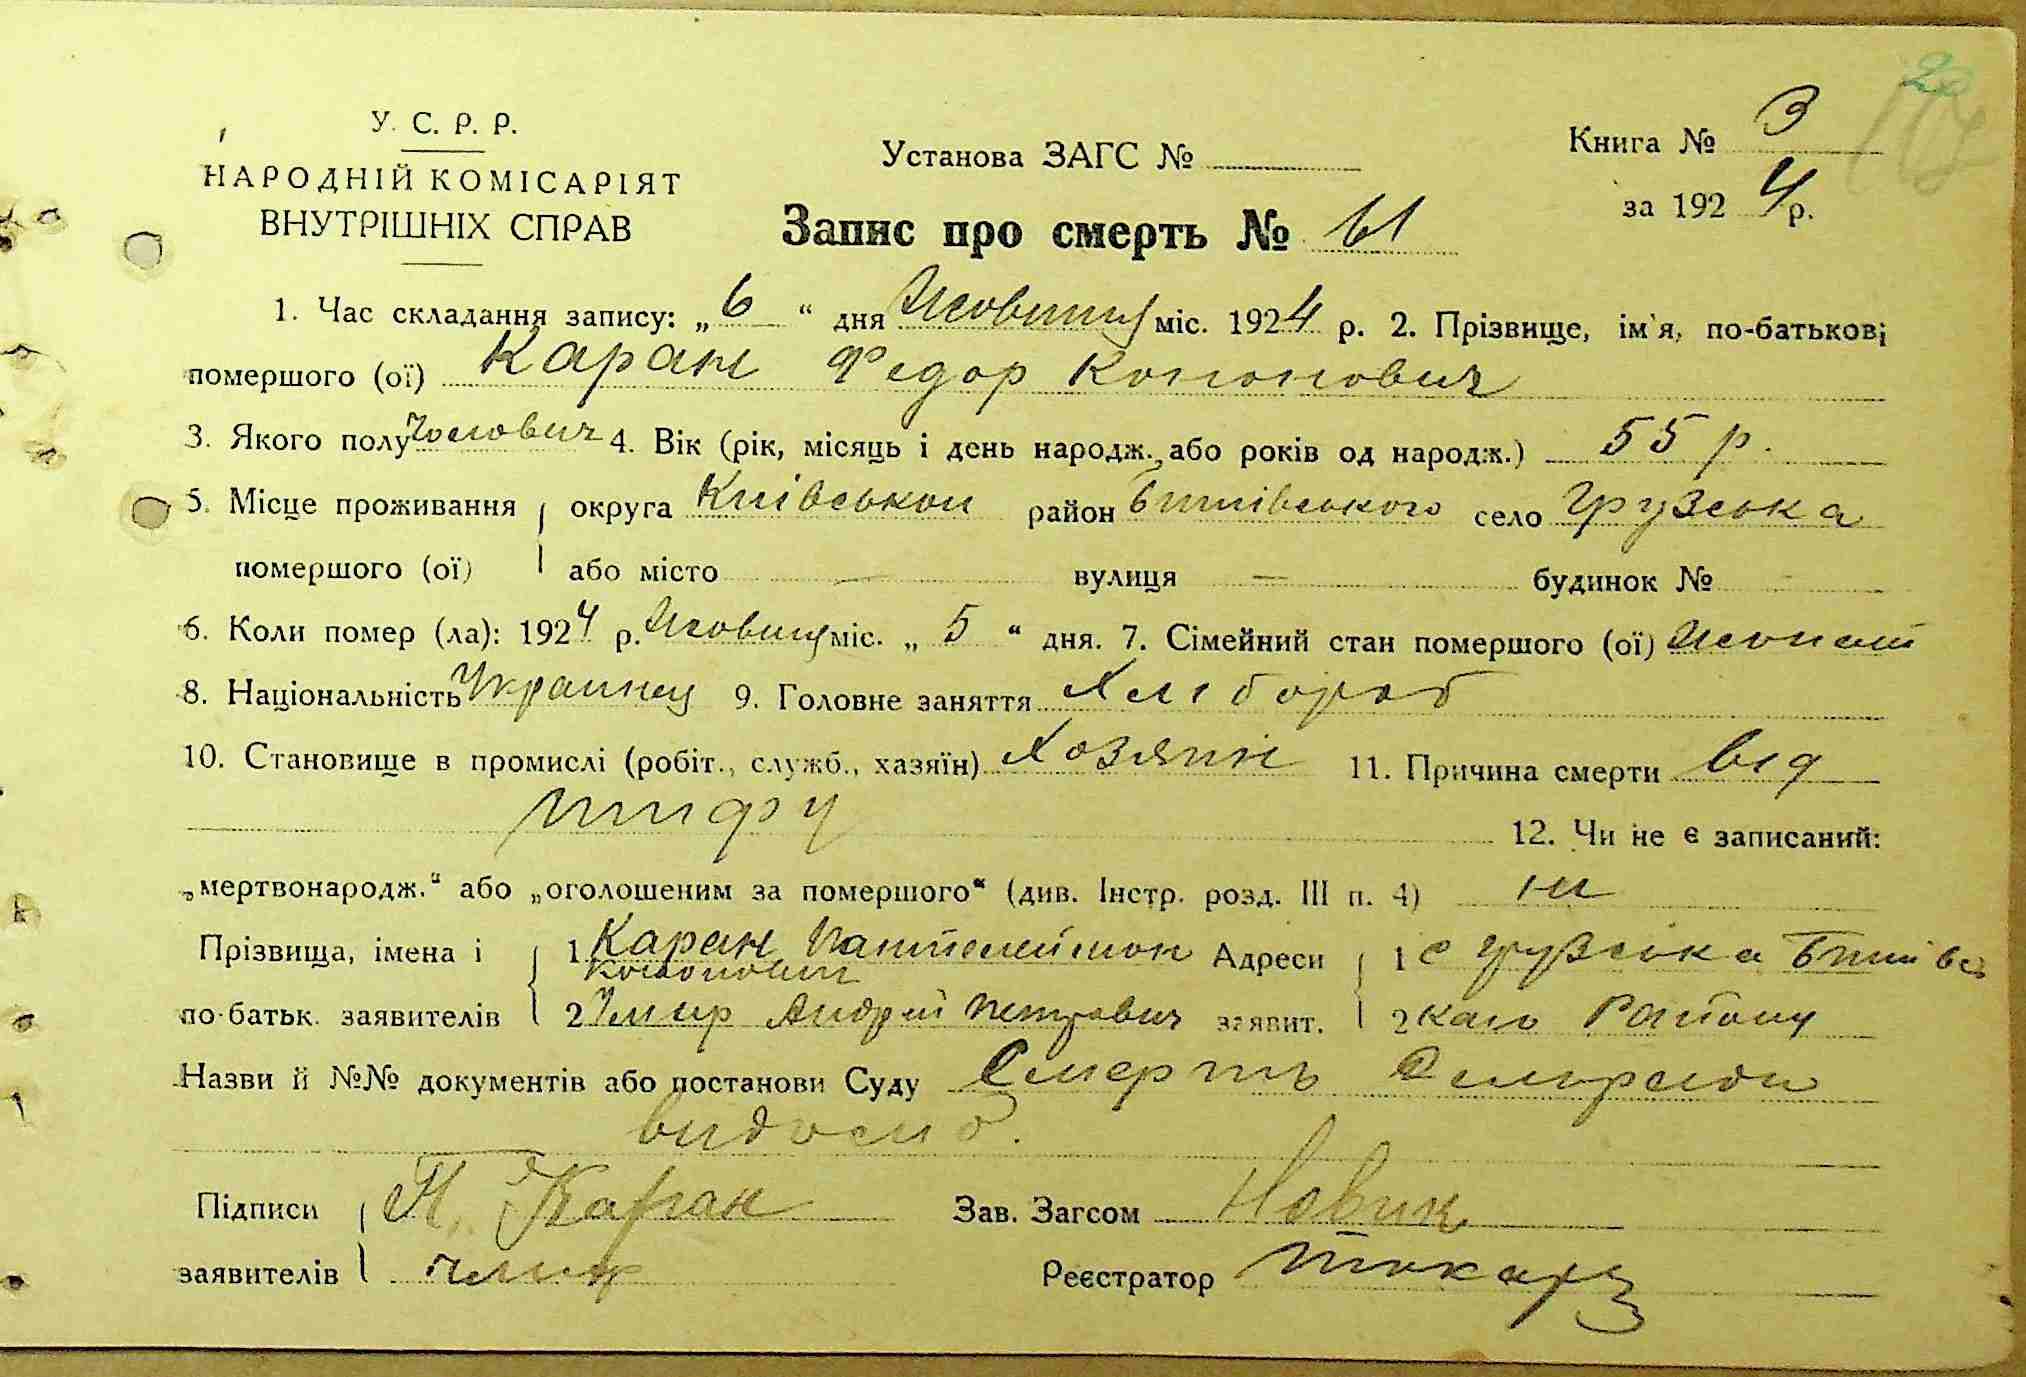 У. С. Р. Р.
НАРОДНІЙ КОМІСАРІЯТ
ВНУТРІШНІХ СПРАВ
Установа ЗАГС №
Книга № 3
за 1924 р.
Запис про смерть № 61
1. Час складання запису: „6“ дня Жовтня міс. 1924 р. 2. Прізвище, ім'я, по-батькові
помершого (ої) Каран Федор Кононович
3. Якого полу Чоловіч 4. Вік (рік, місяць і день народж. або років од народж.) 55 р.
5. Місце проживання округа Київської район Бишівського село Грузська
помершого (ої) або місто — вулиця — будинок №
6. Коли помер (ла): 1924 р. Жовтня міс. „5“ дня. 7. Сімейний стан помершого (ої) Жонат
8. Національність Украинец 9. Головне заняття Хлібороб
10. Становище в промислі (робіт., служб., хазяїн) Хозяїн 11. Причина смерти від
тифу
12. Чи не є записаний:
„мертвонародж.“ або „оголошеним за помершого“ (див. Інстр. розд. III п. 4) ні
Прізвища, імена і 1 Каран Пантелеймон Адреси 1 с Грузська Бишівсь
Кононович
по-батьк. заявителів 2 Андрій Петрович заявит. 2 кого Району
Назви й №№ документів або постанови Суду Смерть
Підписи П. Каран Зав. Загсом Новик
заявителів Реєстратор Токар